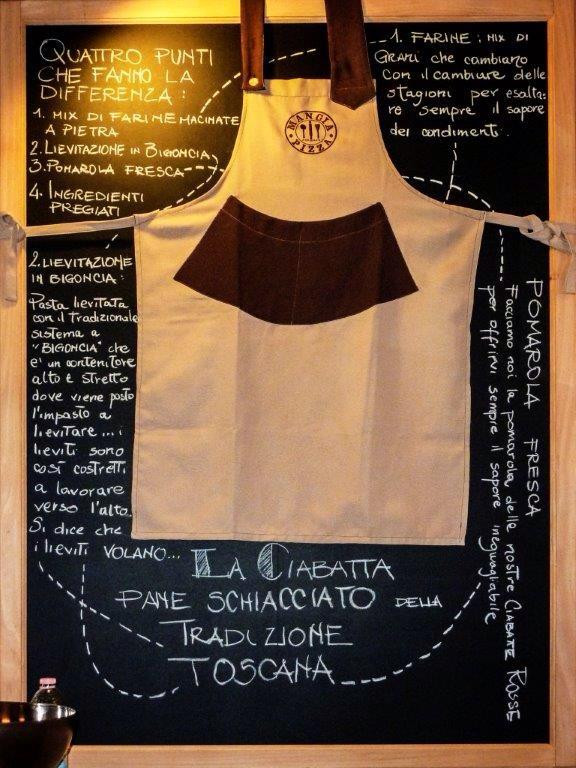 QUATTRO PUNTI
CHE FANNO LA
DIFFERENZA:
1. MIX DI FARINE MACINATE
A PIETRA
2. LIEVITAZIONE IN BIGONCIA
3. POMAROLA FRESCA
4. INGREDIENTI
PREGIATI
1. FARINE: MIX DI
GRANI che cambiano
con il cambiare delle
stagioni per esalta-
re sempre il sapore
dei condimenti.
MANGIA
PIZZA
2. LIEVITAZIONE
IN BIGONCIA:
Pasta lievitata
con il tradizionale
sistema a
"BIGONCIA" che
e' un contenitore
alto e stretto
dove viene posto
l'impasto a
lievitare... i
lieviti sono
così costretti
a lavorare
verso l'alto.
Si dice che
i lieviti VOLANO...
POMAROLA FRESCA
Facciamo noi la pomarola delle nostre CIABATE ROSSE
per offrirvi sempre il sapore ineguagliabile
LA CIABATTA
PANE SCHIACCIATO DELLA
TRADIZIONE
TOSCANA